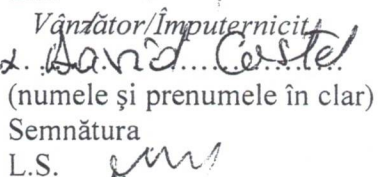 Vânzător/Împuternicit,
David Costel
(numele şi prenumele în clar)
Semnătura
L.S.